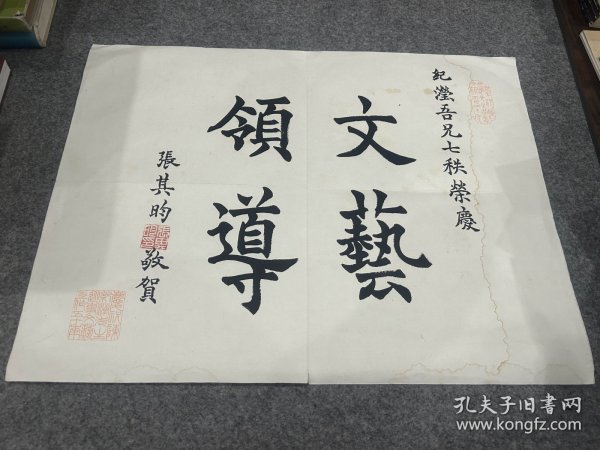 紀瀅吾兄七秩榮慶
文藝
領導
張其昀敬賀
孔夫子旧书网
www.kongfz.com